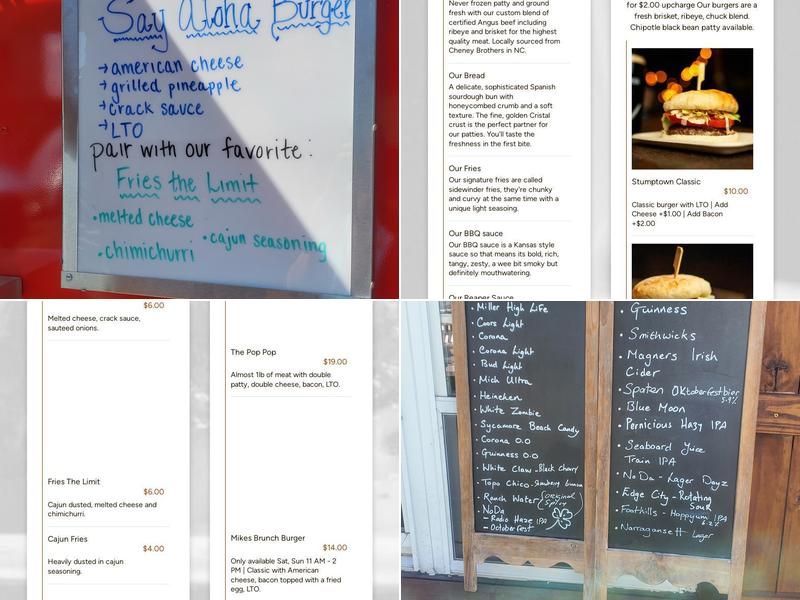 Say Aloha Burger
→american cheese
→grilled pineapple
→crack sauce
→LTO
pair with our favorite:
Fries the Limit
•melted cheese
•cajun seasoning
•chimichurri
Never frozen patty and ground
fresh with our custom blend of
certified Angus beef including
ribeye and brisket for the highest
quality meat. Locally sourced from
Cheney Brothers in NC.
Our Bread
A delicate, sophisticated Spanish
sourdough bun with
honeycombed crumb and a soft
texture. The fine, golden Cristal
crust is the perfect partner for
our patties. You'll taste the
freshness in the first bite.
Our Fries
Our signature fries are called
sidewinder fries, they're chunky
and curvy at the same time with a
unique light seasoing.
Our BBQ sauce
Our BBQ sauce is a Kansas style
sauce so that means its bold, rich,
tangy, zesty, a wee bit smoky but
definitely mouthwatering.
Our Reaper Sauce
for $2.00 upcharge Our burgers are a
fresh brisket, ribeye, chuck blend.
Chipotle black bean patty available.
Stumptown Classic
$10.00
Classic burger with LTO | Add
Cheese +$1.00 | Add Bacon
+$2.00
$6.00
Melted cheese, crack sauce,
sauteed onions.
Fries The Limit
$6.00
Cajun dusted, melted cheese and
chimichurri.
Cajun Fries
$4.00
Heavily dusted in cajun
seasoning.
The Pop Pop
$19.00
Almost 1lb of meat with double
patty, double cheese, bacon, LTO.
Mikes Brunch Burger
$14.00
Only available Sat, Sun 11 AM - 2
PM | Classic with American
cheese, bacon topped with a fried
egg, LTO.
Miller High Life
• Coors Light
• Corona
• Corona Light
• Bud Light
• Mich Ultra
• Heineken
• White Zombie
• Sycamore Beach Candy
• Corona 0.0
• Guinness 0.0
• White Claw - Black Cherry
• Topo Chico - Strawberry Guava
• Ranch Water (Original Spicy
• NoDa
- Radio Haze IPA
- Octoberfest
• Guinness
• Smithwicks
• Magners Irish
Cider
• Spaten Oktoberfestbier
5.9%
• Blue Moon
• Pernicious Hazy IPA
• Seaboard Juice
Train IPA
• NoDa - Lager Dayz
• Edge City - Rotating
Sour
• Foothills - Hoppyum IPA
6.2%
• Narragansett Lager